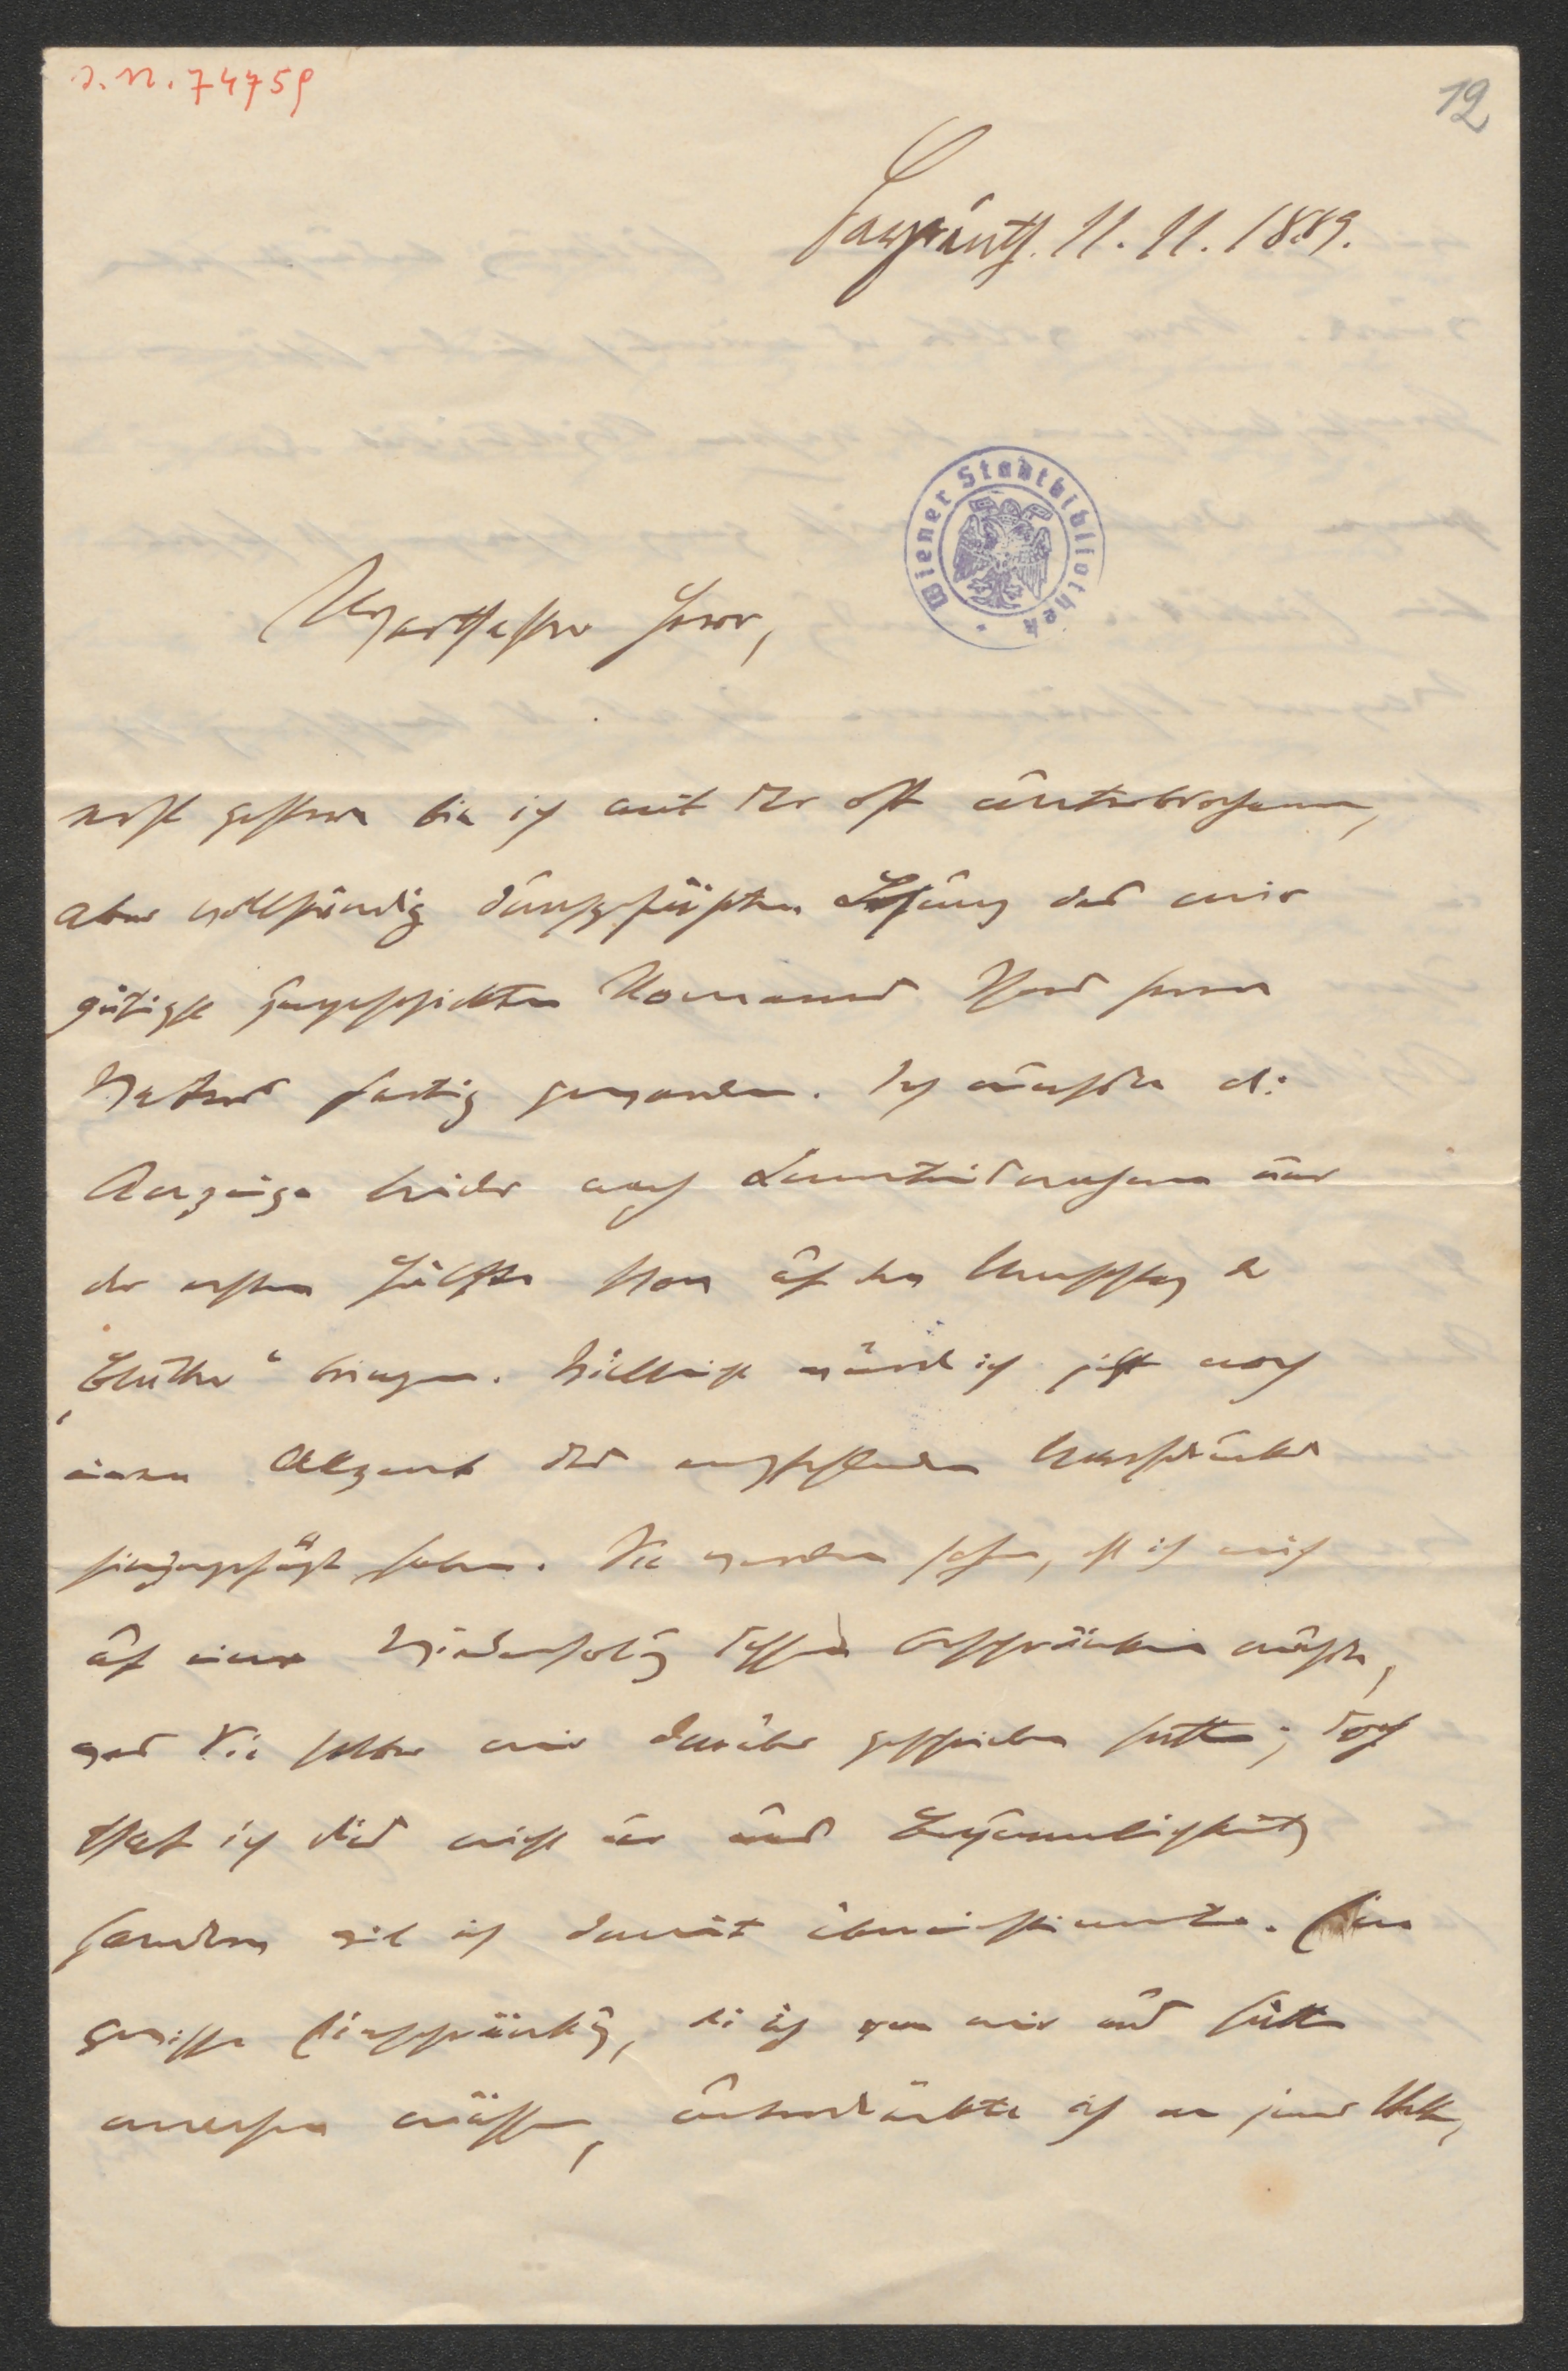 J. N. 74759
12
Bayreuth. 11. 11. 1889.
Wiener Stadtbibliothek
Werthester Herr,
erst gestern bin ich mit der oft unterbrochenen,
aber vollständig durchgeführten Lesung des mir
gütigst zugeschickten Romanes
fertig geworden. Ich musste die
Anzeige leider nach nur
der ersten Hälfte schon auf den Umschlag der
„Blätter“ bringen. Vielleicht würde ich jetzt noch
einen Akzent des empfehlenden Ausdrucks
hinzugefügt haben. Sie werden sehen, dass ich mich
auf eine Wiederholung dessen beschränken musste,
was Sie selber mir darüber geschrieben hatten; doch
that ich dies nicht nur aus
sondern weil ich damit übereinstimmte. Eine
gewisse Einschränkung, die ich von mir aus hätte
machen müssen, unterdrückte ich an jener Stelle,